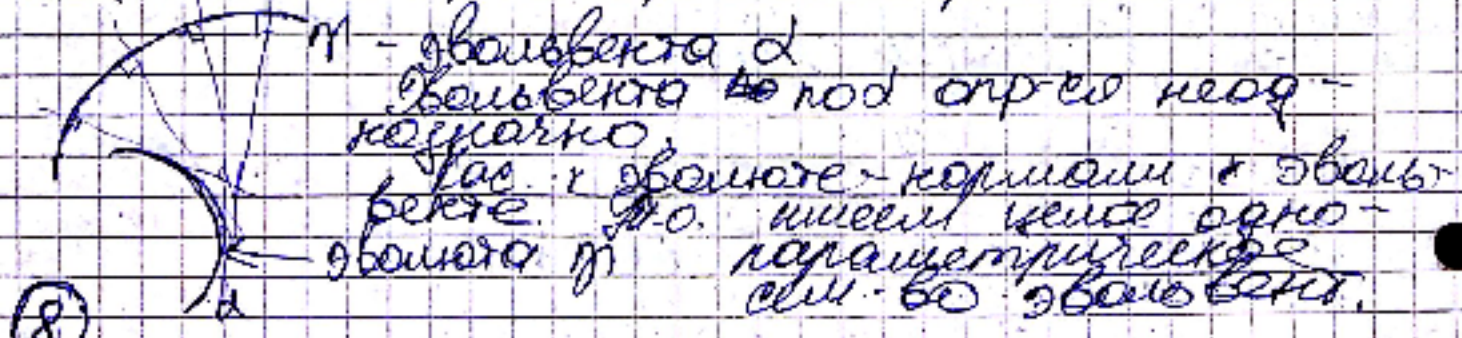 γ - эвольвента α
Эвольвента по α опр-ся неод-
нозначно.
Кас. к эволюте - нормали к эволь-
венте. Т.о. имеем целое одно-
эволюта γ параметрическое
α сем-во эвольвент.
8